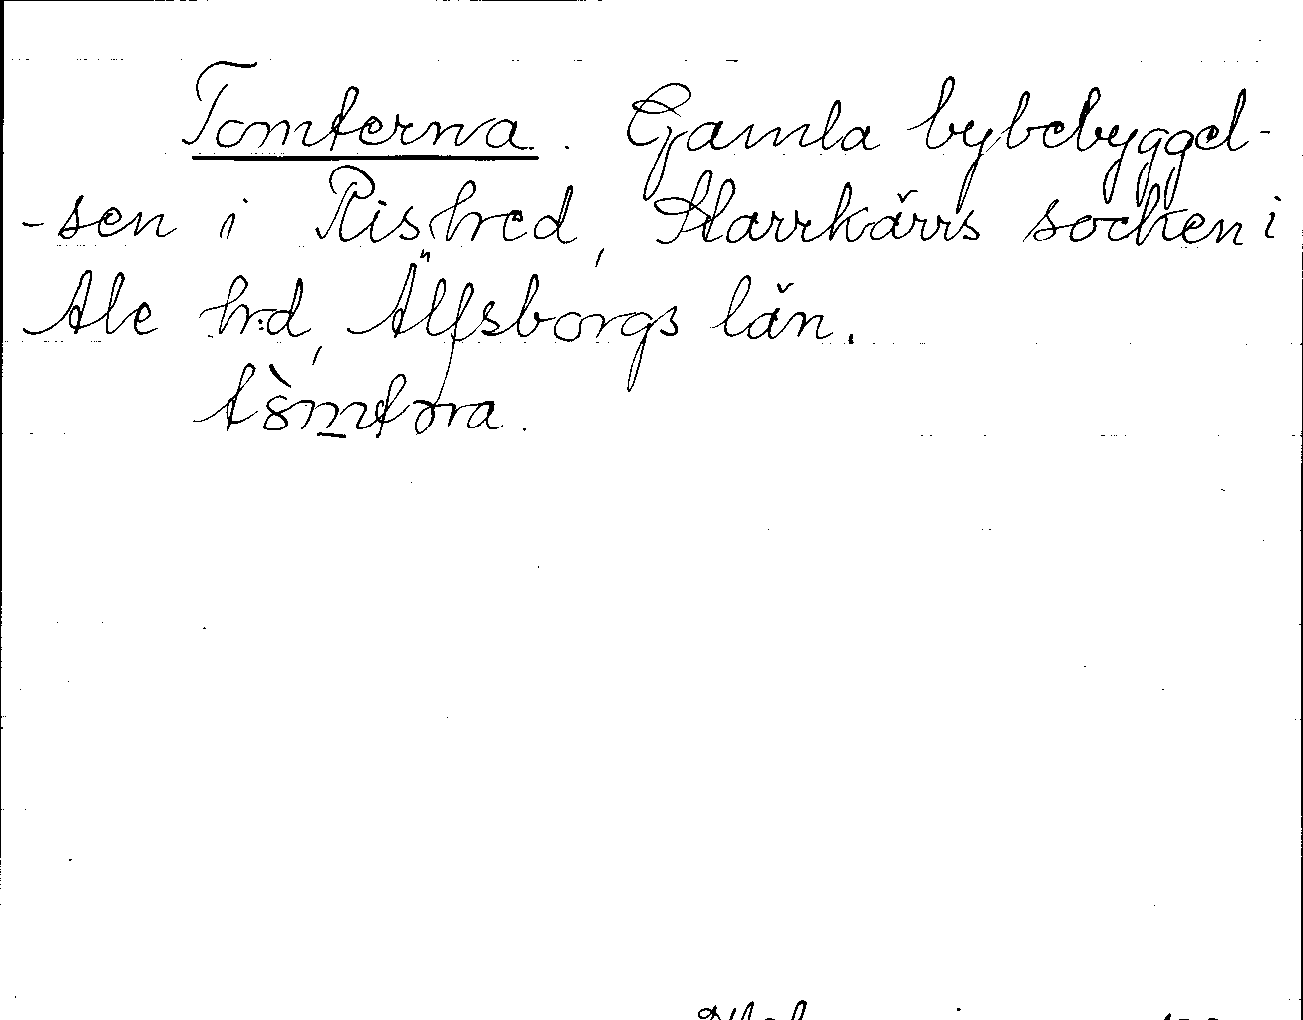 Tomterna. Gamla bybebyggel-
-sen i Rished, Starrkärrs socken i
Ale hrd, Älfsborgs län.
tòmtəra.